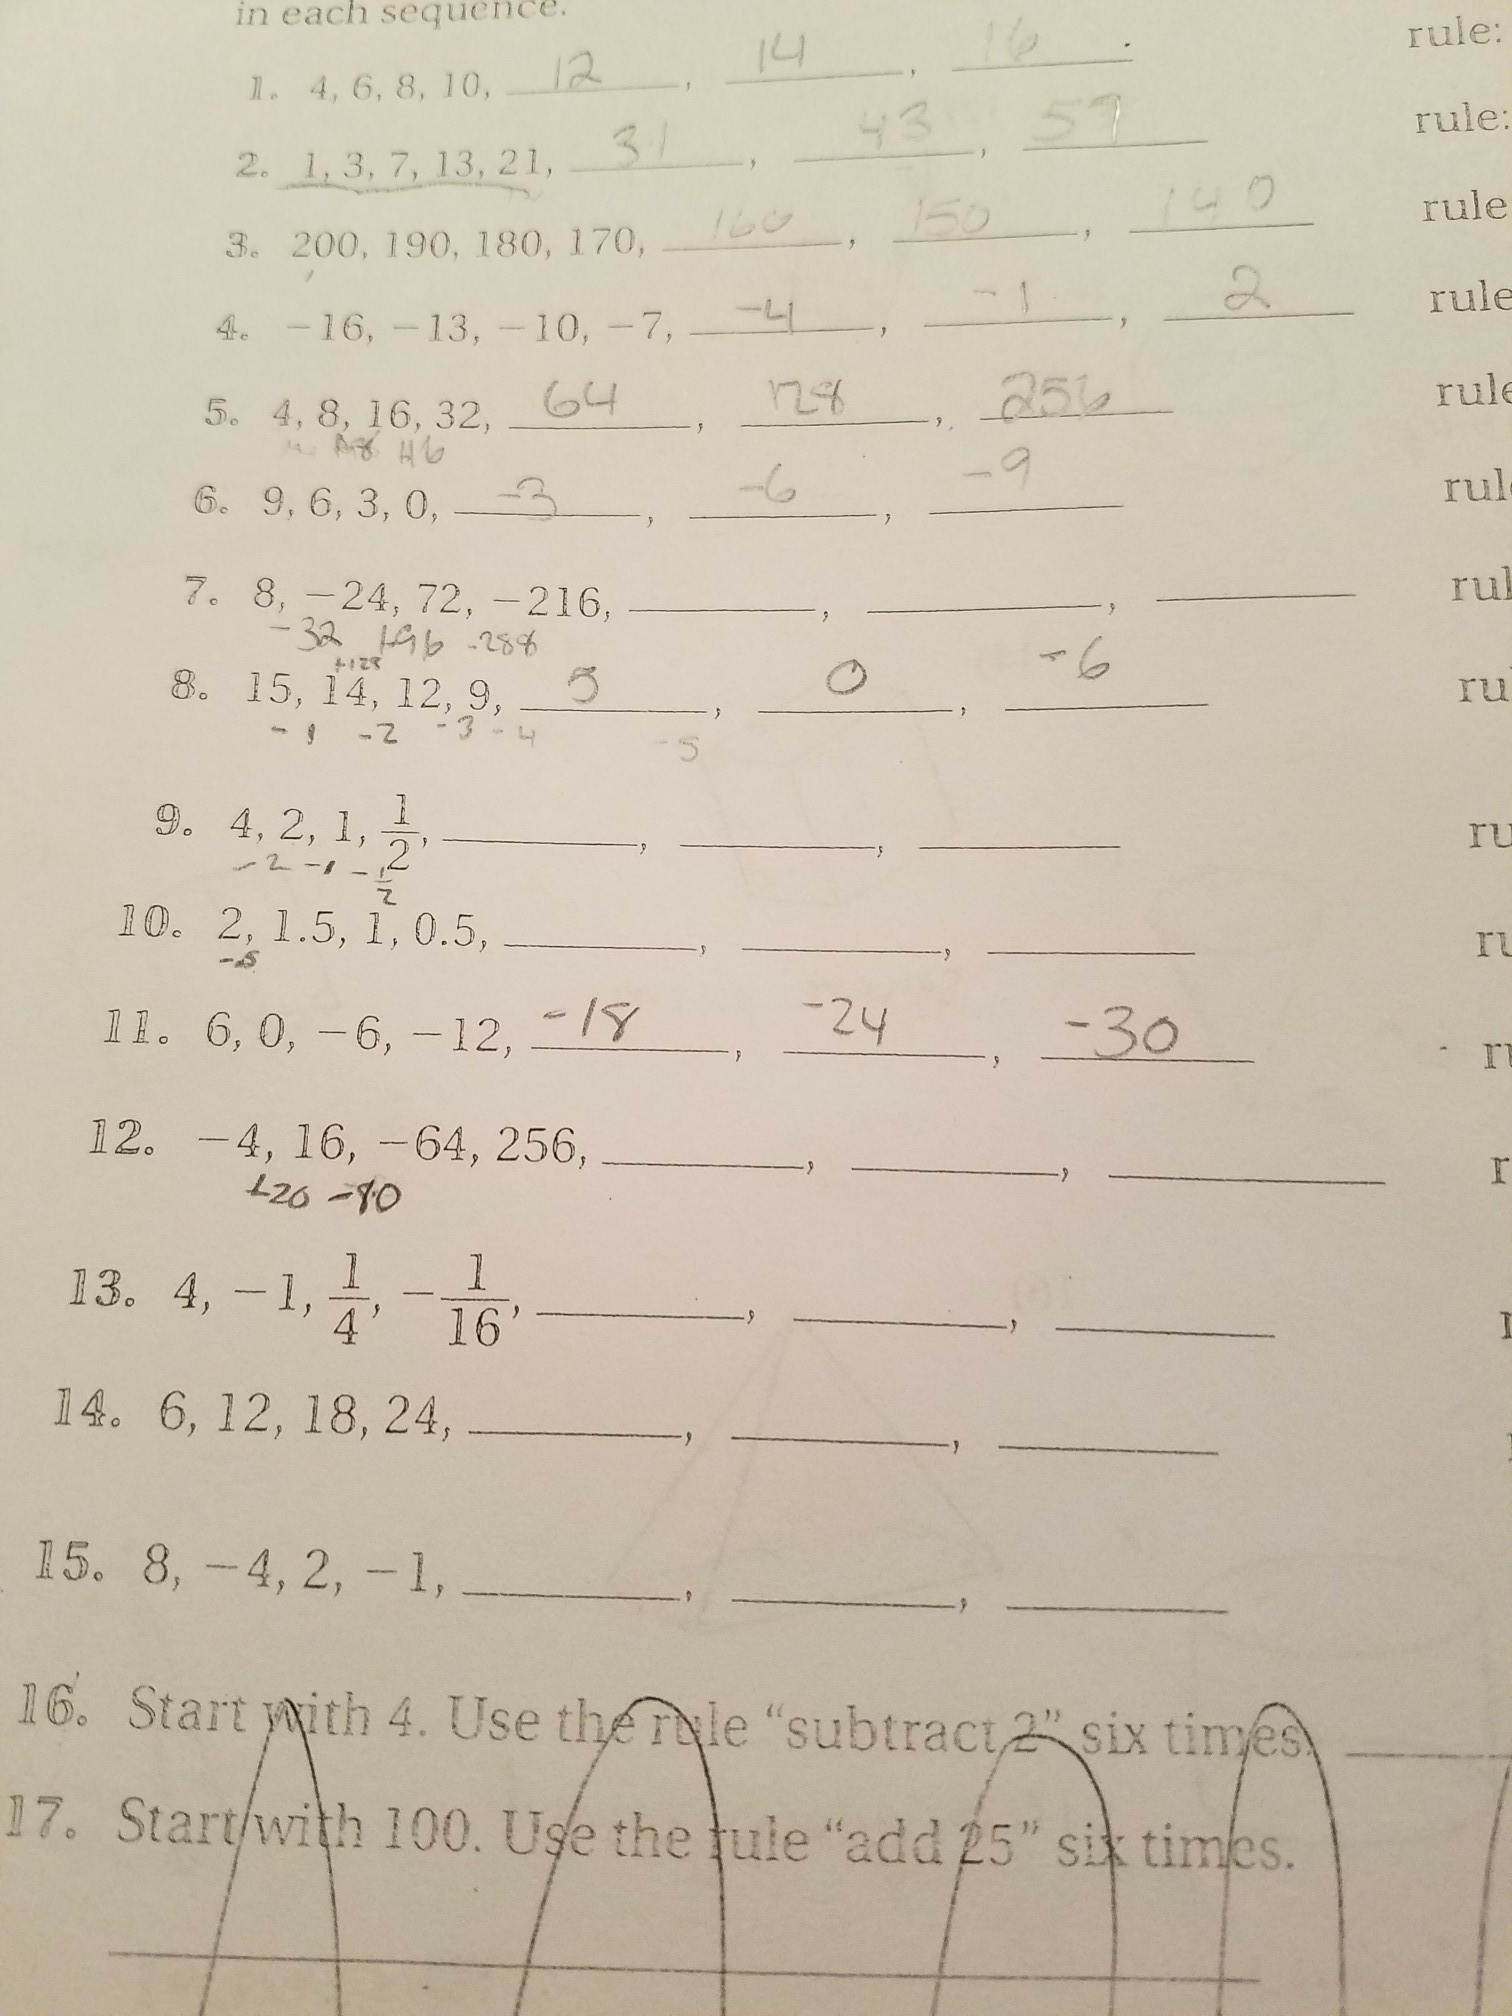 in each sequence.
1. 4, 6, 8, 10, 12, 14, 16 rule:
2. 1, 3, 7, 13, 21, 31, 43, 57 rule:
3. 200, 190, 180, 170, 160, 150, 140 rule
4. −16, −13, −10, −7, -4, -1, 2 rule
5. 4, 8, 16, 32, 64, 128, 256 rule
6. 9, 6, 3, 0, -3, -6, -9 rul
7. 8, −24, 72, −216, rul
-32 +96 -288
+128
8. 15, 14, 12, 9, 5, 0, -6 ru
-1 -2 -3 -4 -5
9. 4, 2, 1, 1/2, ru
-2 -1 -1/2
10. 2, 1.5, 1, 0.5, ru
-.5
11. 6, 0, −6, −12, -18, -24, -30 ru
12. −4, 16, −64, 256, r
+20 -80
13. 4, −1, 1/4, −1/16, r
14. 6, 12, 18, 24,
15. 8, −4, 2, −1,
16. Start with 4. Use the rule “subtract 2” six times.
17. Start with 100. Use the rule “add 25” six times.